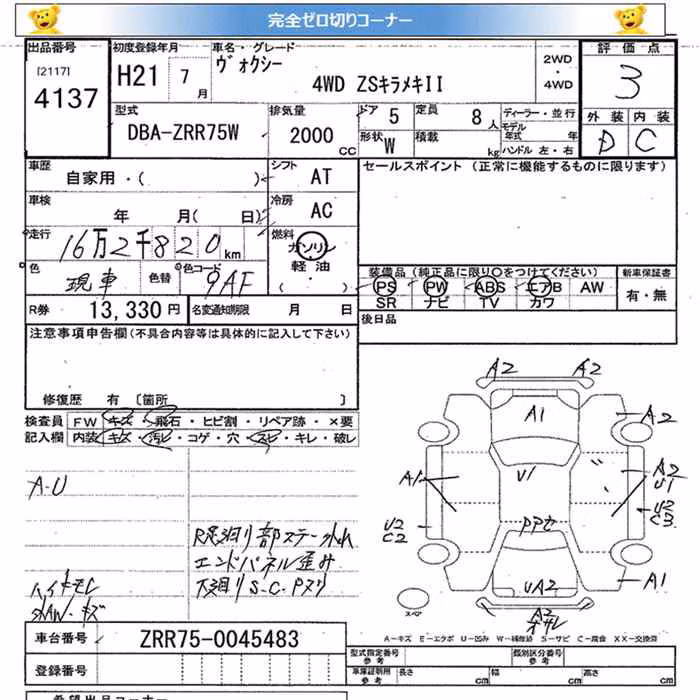 完全ゼロ切りコーナー
出品番号
[2117]
4137
初度登録年月
H21 7月
車名・グレード
ヴォクシー
4WD ZSキラメキII
2WD
・
4WD
評価点
3
外装 内装
D C
型式
DBA-ZRR75W
排気量
2000 CC
ドア 5
定員 8人
形状 W
積載 kg
ディーラー・並行
モデル年式 年
ハンドル 左・右
車歴
自家用・( )
シフト AT
車検
年 月( 日)
冷房 AC
走行
16万2千820km
燃料
ガソリン
軽油
( )
色
現車
色替
色コード
9AF
R券
13,330円
名変通知期限 月 日
セールスポイント (正常に機能するものに限ります)
装備品(純正品に限り○をつけてください)
PS PW ABS エアB AW
SR ナビ TV カワ
新車保証書
有・無
後日品
注意事項申告欄(不具合内容等は具体的に記入して下さい)
修復歴 有 〔箇所 〕
検査員記入欄
FW キズ・飛石・ヒビ割・リペア跡・×要
内装 キズ・汚レ・コゲ・穴・スレ・キレ・破レ
A・U
R足廻り部ステー外れ
エンドパネル歪み
下廻りS.C.Pヌリ
A2 A2
A1
A2
A1
U1
A2
U1
U2
C2
U2
C3
PPセ
UA2
A1
A2
スペア
A-キズ E-エクボ U-凹み W-補修跡 S-サビ C-腐食 XX-交換済
車台番号
ZRR75-0045483
登録番号
型式指定番号
参考
類別区分番号
参考
車庫証明用
参考
長さ cm
幅 cm
高さ cm
希望出品コーナー